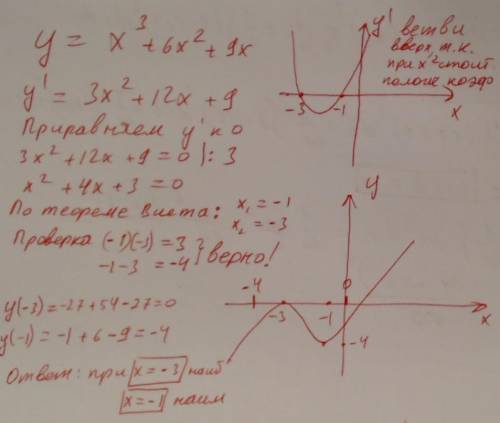 y = x³ + 6x² + 9x
y' = 3x² + 12x + 9
Приравняем y' к 0
3x² + 12x + 9 = 0 |: 3
x² + 4x + 3 = 0
По теореме Виета: x₁ = -1
x₂ = -3
Проверка (-1)(-3) = 3
-1 - 3 = -4 } верно!
y(-3) = -27 + 54 - 27 = 0
y(-1) = -1 + 6 - 9 = -4
Ответ: при x = -3 наиб
x = -1 наим
y' ветви
вверх, т.к.
при x² стоит
полож коэф
-3 -1 x
y
-4 -3 -1 0 x
-4